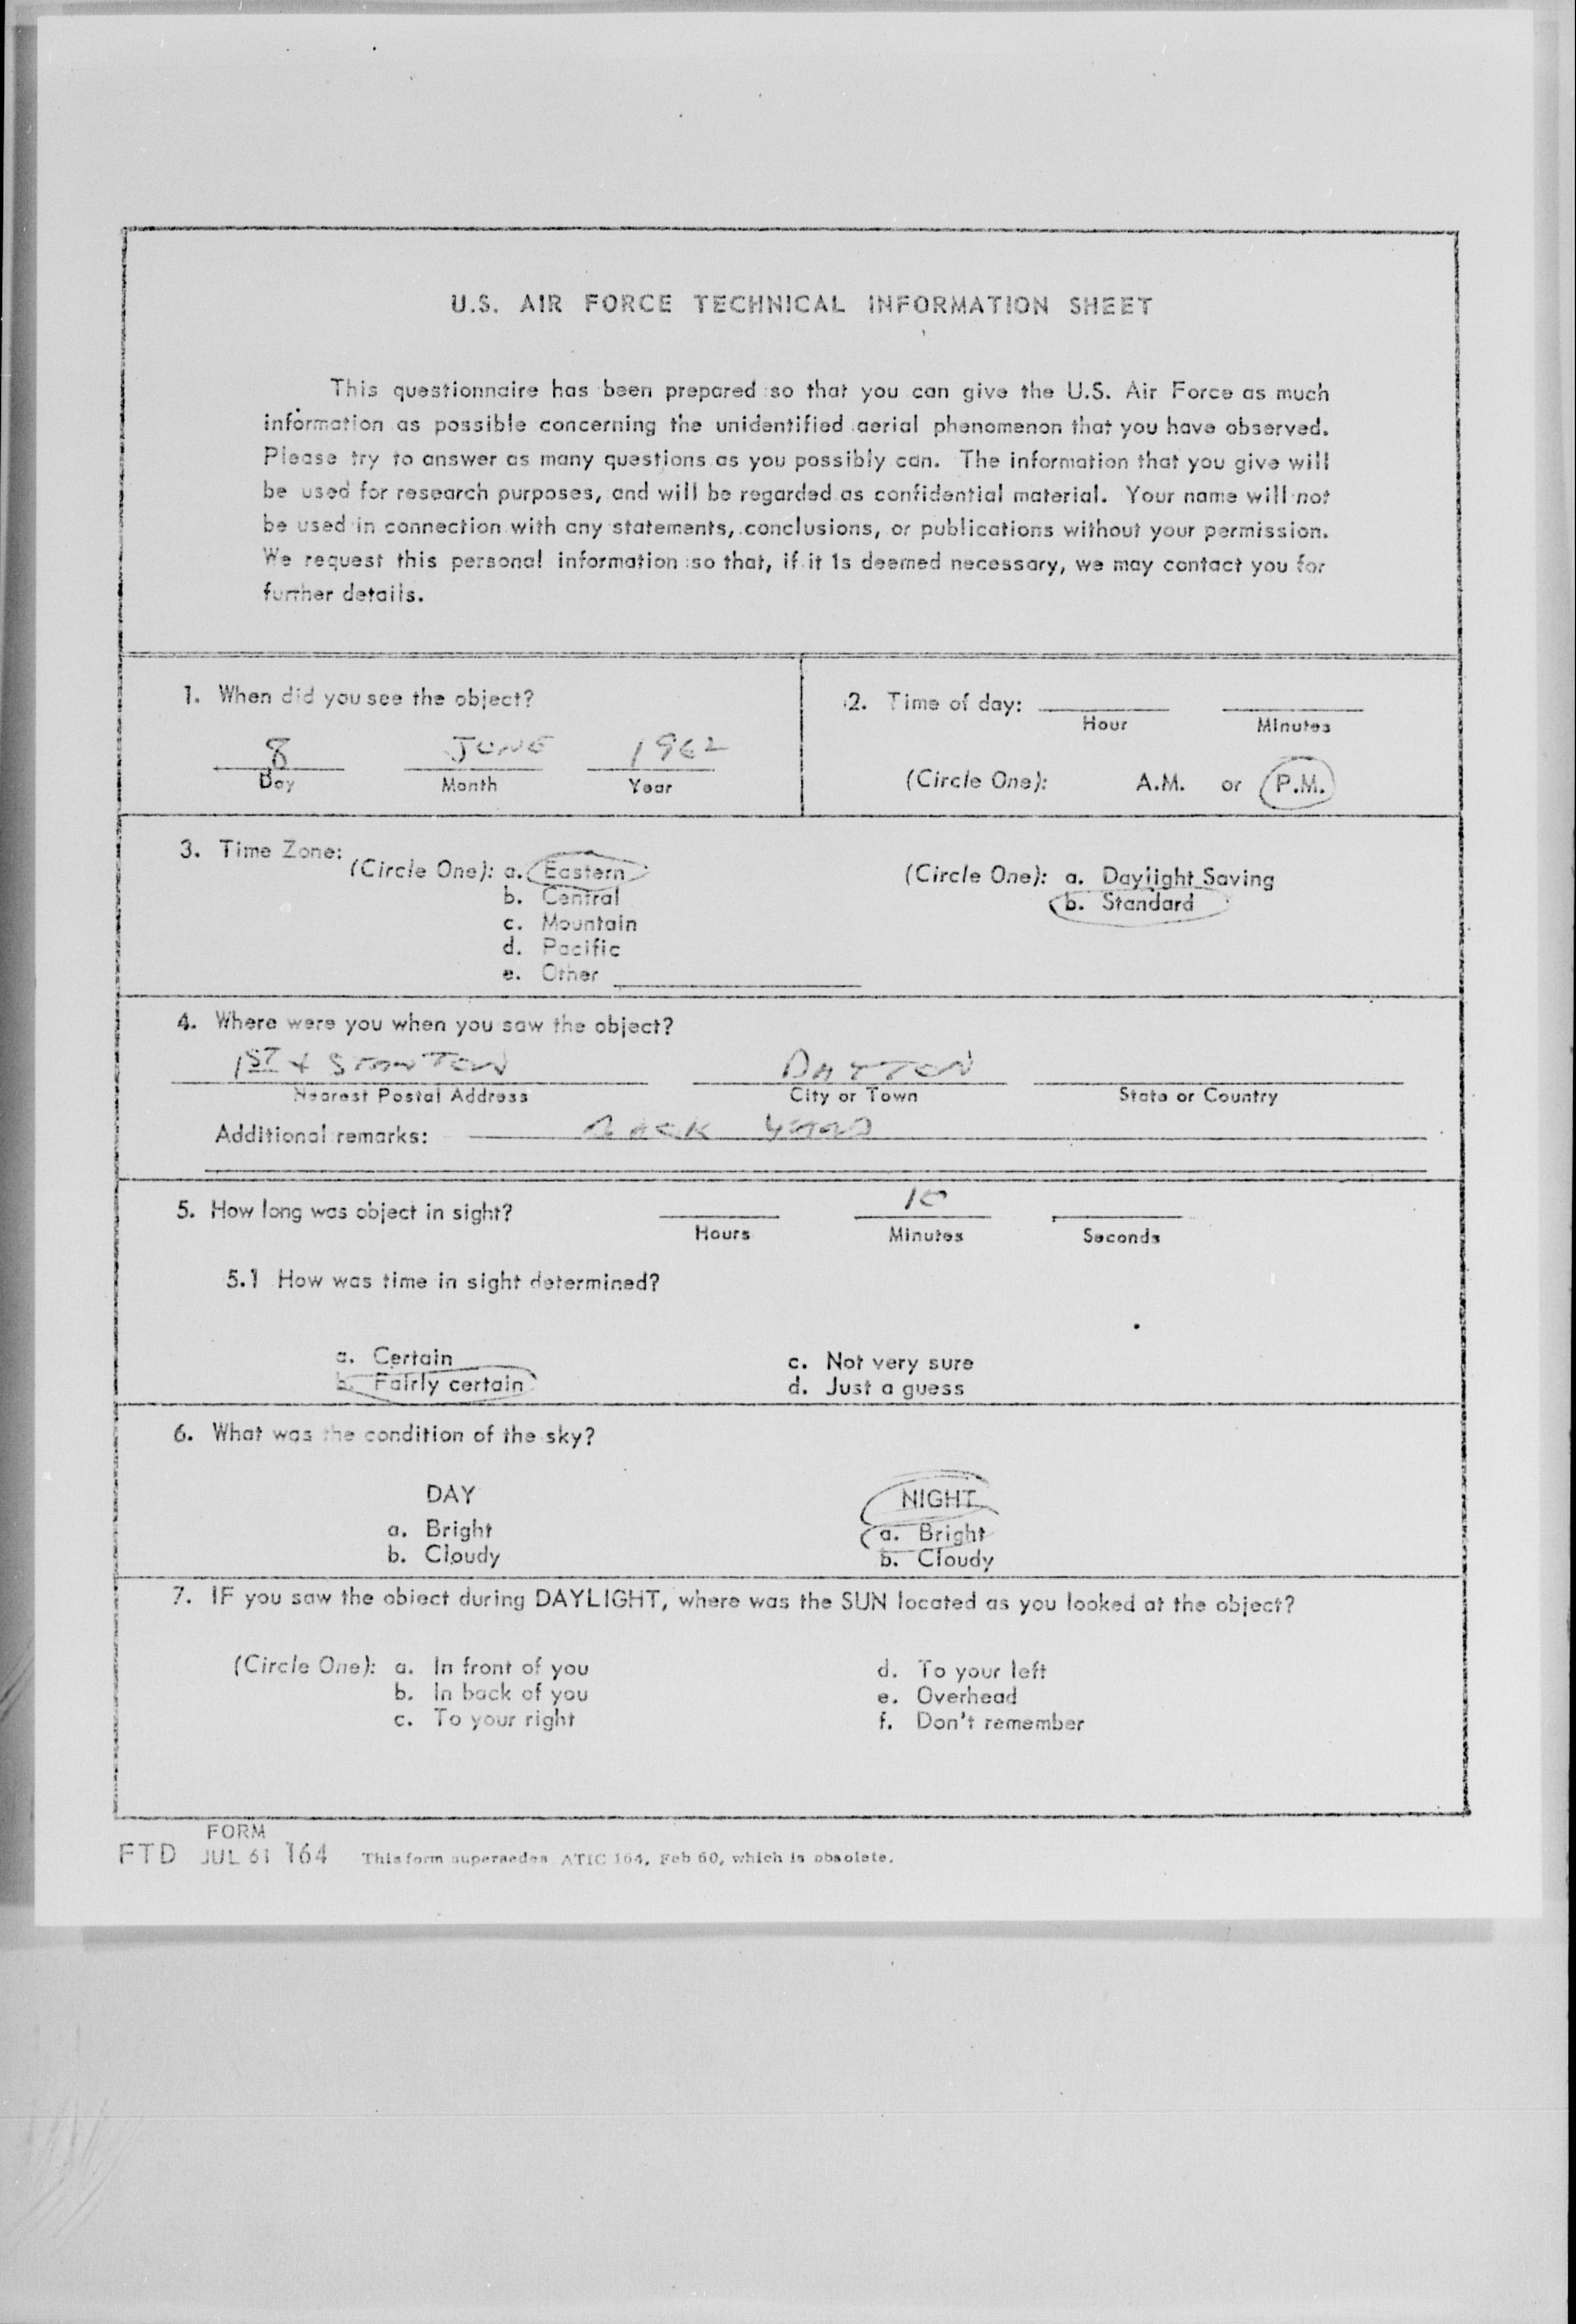 U.S. AIR FORCE TECHNICAL INFORMATION SHEET
This questionnaire has been prepared so that you can give the U.S. Air Force as much
information as possible concerning the unidentified aerial phenomenon that you have observed.
Please try to answer as many questions as you possibly can. The information that you give will
be used for research purposes, and will be regarded as confidential material. Your name will not
be used in connection with any statements, conclusions, or publications without your permission.
We request this personal information so that, if it is deemed necessary, we may contact you for
further details.
1. When did you see the object?
8 JUNE 1962
Day Month Year
2. Time of day:
Hour Minutes
(Circle One): A.M. or P.M.
3. Time Zone:
(Circle One): a. Eastern
b. Central
c. Mountain
d. Pacific
e. Other
(Circle One): a. Daylight Saving
b. Standard
4. Where were you when you saw the object?
1ST + STANTON DAYTON
Nearest Postal Address City or Town State or Country
Additional remarks: BACK YARD
5. How long was object in sight? 10
Hours Minutes Seconds
5.1 How was time in sight determined?
a. Certain
b. Fairly certain
c. Not very sure
d. Just a guess
6. What was the condition of the sky?
DAY
a. Bright
b. Cloudy
NIGHT
a. Bright
b. Cloudy
7. IF you saw the object during DAYLIGHT, where was the SUN located as you looked at the object?
(Circle One): a. In front of you
b. In back of you
c. To your right
d. To your left
e. Overhead
f. Don't remember
FORM
FTD JUL 61 164 This form supersedes ATIC 164, Feb 60, which is obsolete.